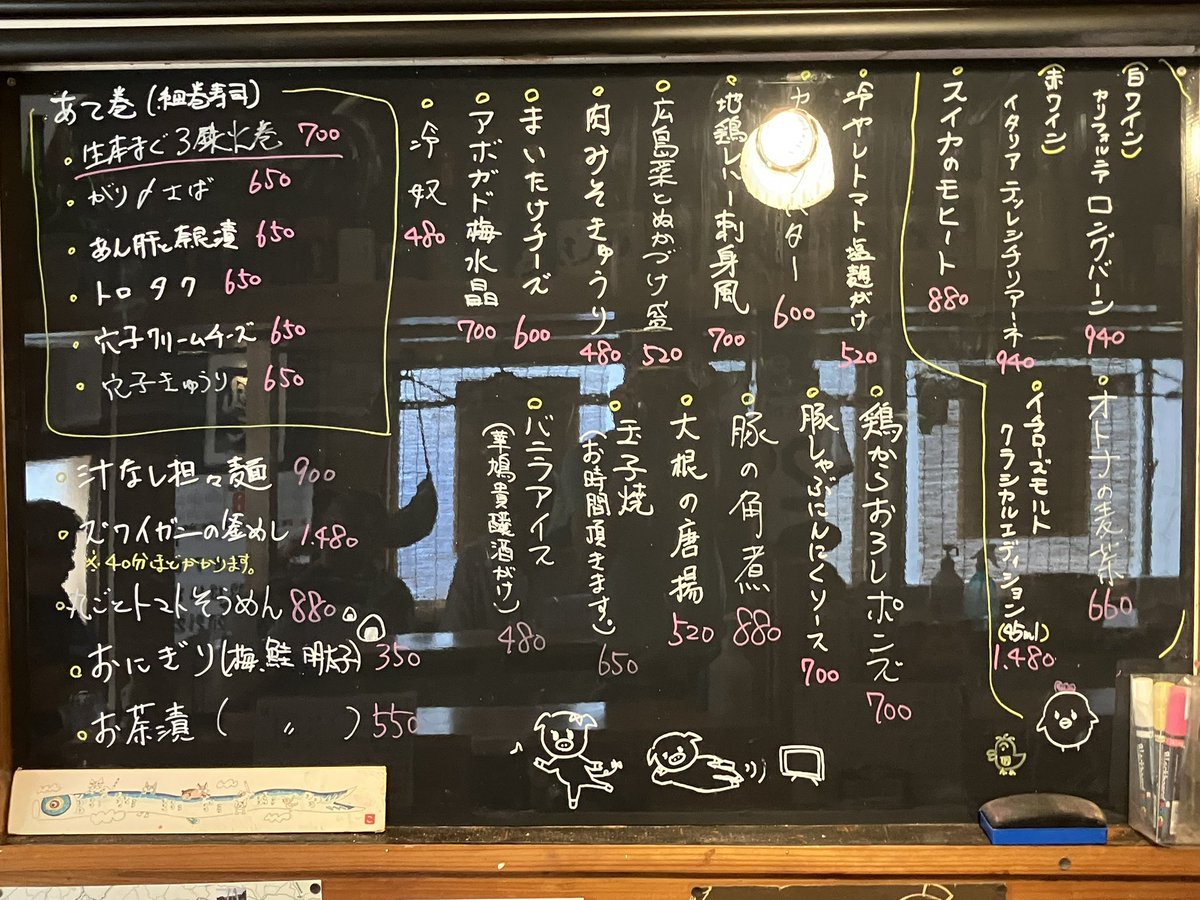 (白ワイン)
カリフォルニア ロングバーン
940
(赤ワイン)
イタリア テッレシチリアーネ
940
スイカのモヒート
880
オトナの麦茶
660
イチローズモルト
クラシカルエディション(45ml)
1.480
冷やしトマト塩麹がけ
520
600
地鶏レバー刺身風
700
広島菜とぬかづけ盛
520
肉みそきゅうり
480
まいたけチーズ
600
アボガド梅水晶
700
冷奴
480
鶏からおろしポン酢
700
豚しゃぶにんにくソース
700
豚の角煮
880
大根の唐揚
520
玉子焼
(お時間頂きます。)
650
バニラアイス
(華鳩貴醸酒がけ)
480
あて巻(細巻寿司)
生本まぐろ鉄火巻 700
がり〆さば 650
あん肝と奈良漬 650
トロタク 650
穴子クリームチーズ 650
穴子きゅうり 650
汁なし担々麺 900
ズワイガニの釜めし 1.480
※40分ほどかかります。
丸ごとトマトそうめん 880
おにぎり(梅、鮭、明太子) 350
お茶漬( 〃 ) 550